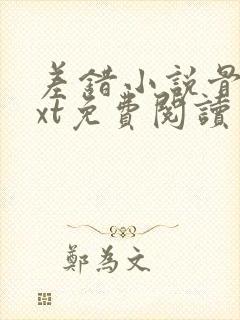 差錯小說
xt免費閱讀
鄭為文